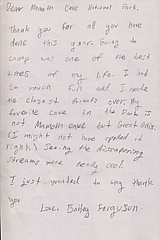 Dear Mammoth Cave National Park,
Thank you for all you have
done this year. Going to
camp was one of the best
times of my life. I had
so much fun and I made
the closest friends ever. My
favorite cave in the Park is
not Mammoth cave but Great Onix.
(I might not have spelled it
right) Seeing the disappearing
streams were really cool.
I just wanted to say thank
you
Love, Bailey Ferguson